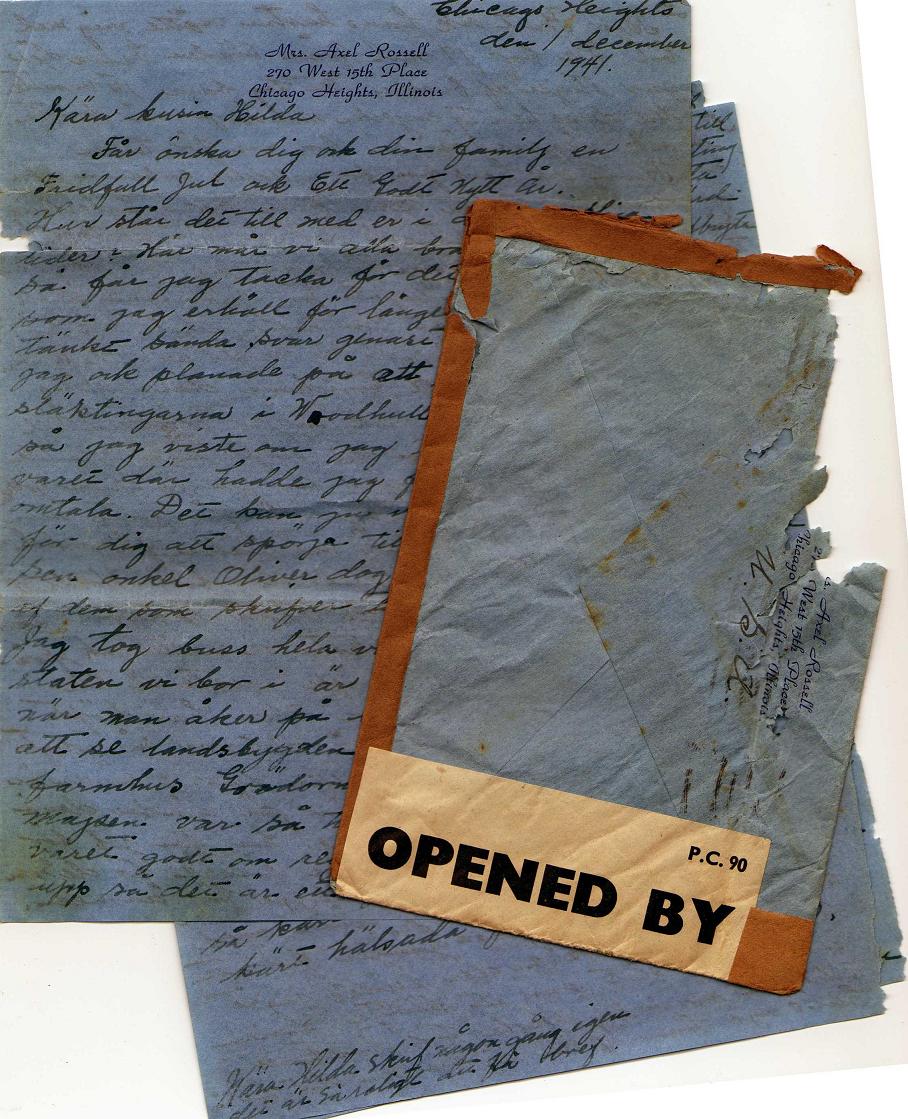 Chicago Heights
den 1 december
1941.
Mrs. Axel Rossell
270 West 15th Place
Chicago Heights, Illinois
Kära kusin Hilda
Får önska dig ock din familj en
Fridfull Jul ock Ett Godt Nytt År.
Hur står det till med er i
tider? Här mår vi alla bra
så får jag tacka för det
som jag erhåll för länge
tänkt sända svar genast
jag ock planade på att
släktingarna i Woodhull
så jag viste om jag
varet där hadde jag
omtala. Det kan ju
för dig att spörja til
sen onkel Oliver dog
af dem som skrifver
Jag tog buss hela v
staten vi bor i är
när man åker på
att se landsbygden
farmhus Grödorn
Majsen var så
varet godt om re
upp så det är en
till
ting
ta
bugta
så kan
kärt hälsada
Kära Hilda skrif någon gång igen
det är så roligt att få bref.
Mrs. Axel Rossell
270 West 15th Place
Chicago Heights, Illinois
U. S. A.
P.C. 90
OPENED BY